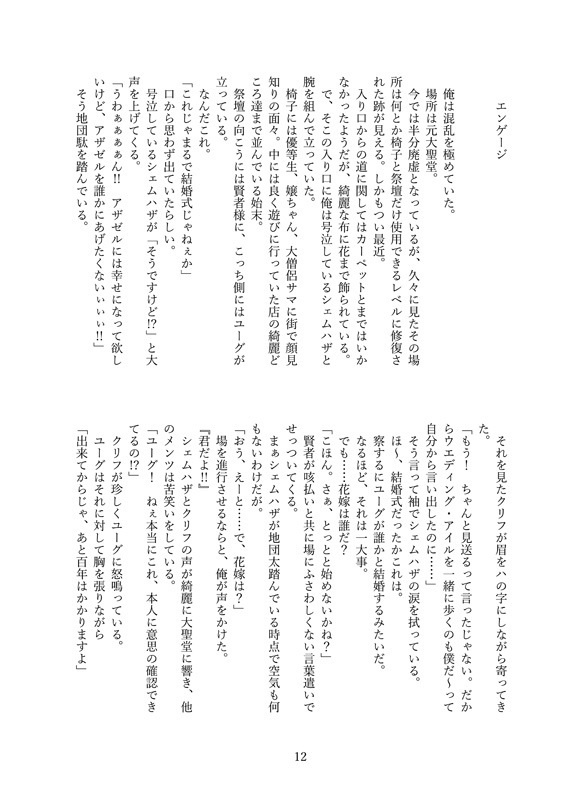 エンゲージ
俺は混乱を極めていた。
場所は元大聖堂。
今では半分廃虚となっているが、久々に見たその場
所は何とか椅子と祭壇だけ使用できるレベルに修復さ
れた跡が見える。しかもつい最近。
入り口からの道に関してはカーペットとまではいか
なかったようだが、綺麗な布に花まで飾られている。
で、そこの入り口に俺は号泣しているシェムハザと
腕を組んで立っていた。
椅子には優等生、嬢ちゃん、大僧侶サマに街で顔見
知りの面々。中には良く遊びに行っていた店の綺麗ど
ころ達まで並んでいる始末。
祭壇の向こうには賢者様に、こっち側にはユーグが
立っている。
なんだこれ。
「これじゃまるで結婚式じゃねぇか」
口から思わず出ていたらしい。
号泣しているシェムハザが「そうですけど!?」と大
声を上げてくる。
「うわぁぁぁぁん!! アザゼルには幸せになって欲し
いけど、アザゼルを誰かにあげたくないぃぃぃ!!」
そう地団駄を踏んでいる。
それを見たクリフが眉をハの字にしながら寄ってき
た。
「もう! ちゃんと見送るって言ったじゃない。だか
らウエディング・アイルを一緒に歩くのも僕だ～って
自分から言い出したのに……」
そう言って袖でシェムハザの涙を拭っている。
ほ～、結婚式だったかこれは。
なるほど、それは一大事。
察するにユーグが誰かと結婚するみたいだ。
でも……花嫁は誰だ?
「こほん。さぁ、とっとと始めないかね?」
賢者が咳払いと共に場にふさわしくない言葉遣いで
せっついてくる。
まぁシェムハザが地団太踏んでいる時点で空気も何
もないわけだが。
「おう、えーと……で、花嫁は?」
場を進行させるならと、俺が声をかけた。
『君だよ!!』
シェムハザとクリフの声が綺麗に大聖堂に響き、他
のメンツは苦笑いをしている。
「ユーグ! ねぇ本当にこれ、本人に意思の確認でき
てるの!?」
クリフが珍しくユーグに怒鳴っている。
ユーグはそれに対して胸を張りながら
「出来てからじゃ、あと百年はかかりますよ」
12